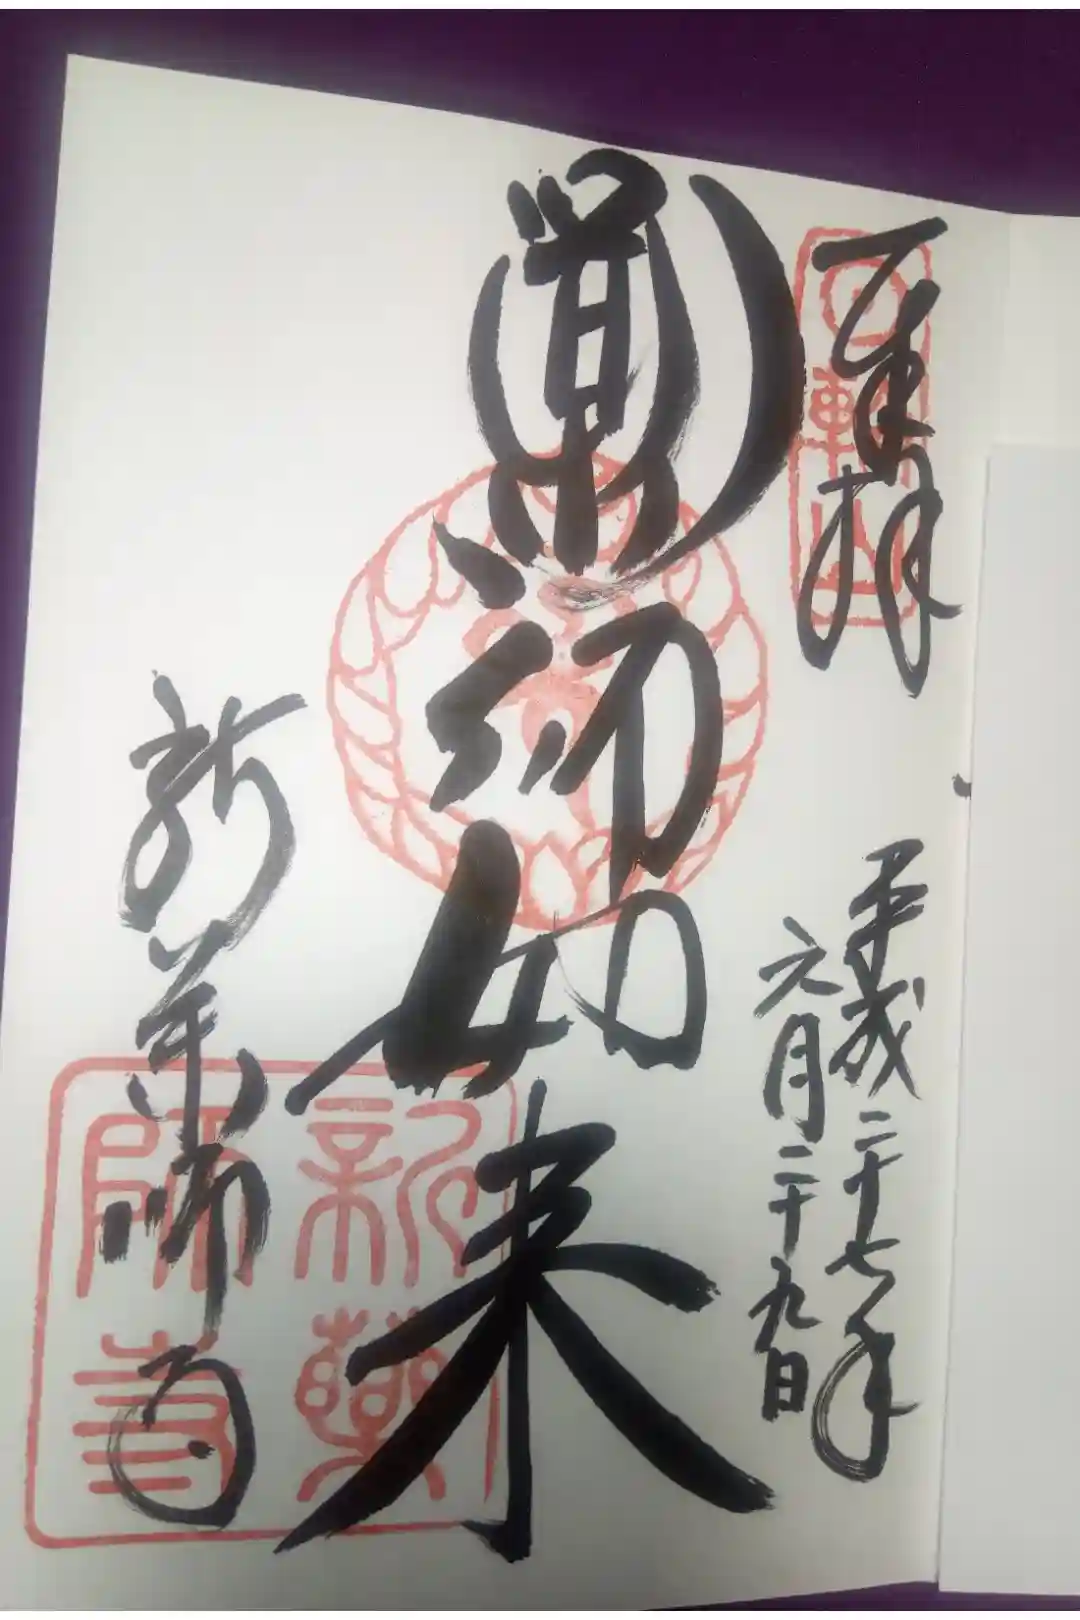 奉拝
日輪山
平成二十七年
六月二十九日
薬師如来
新薬師寺
新藥師寺